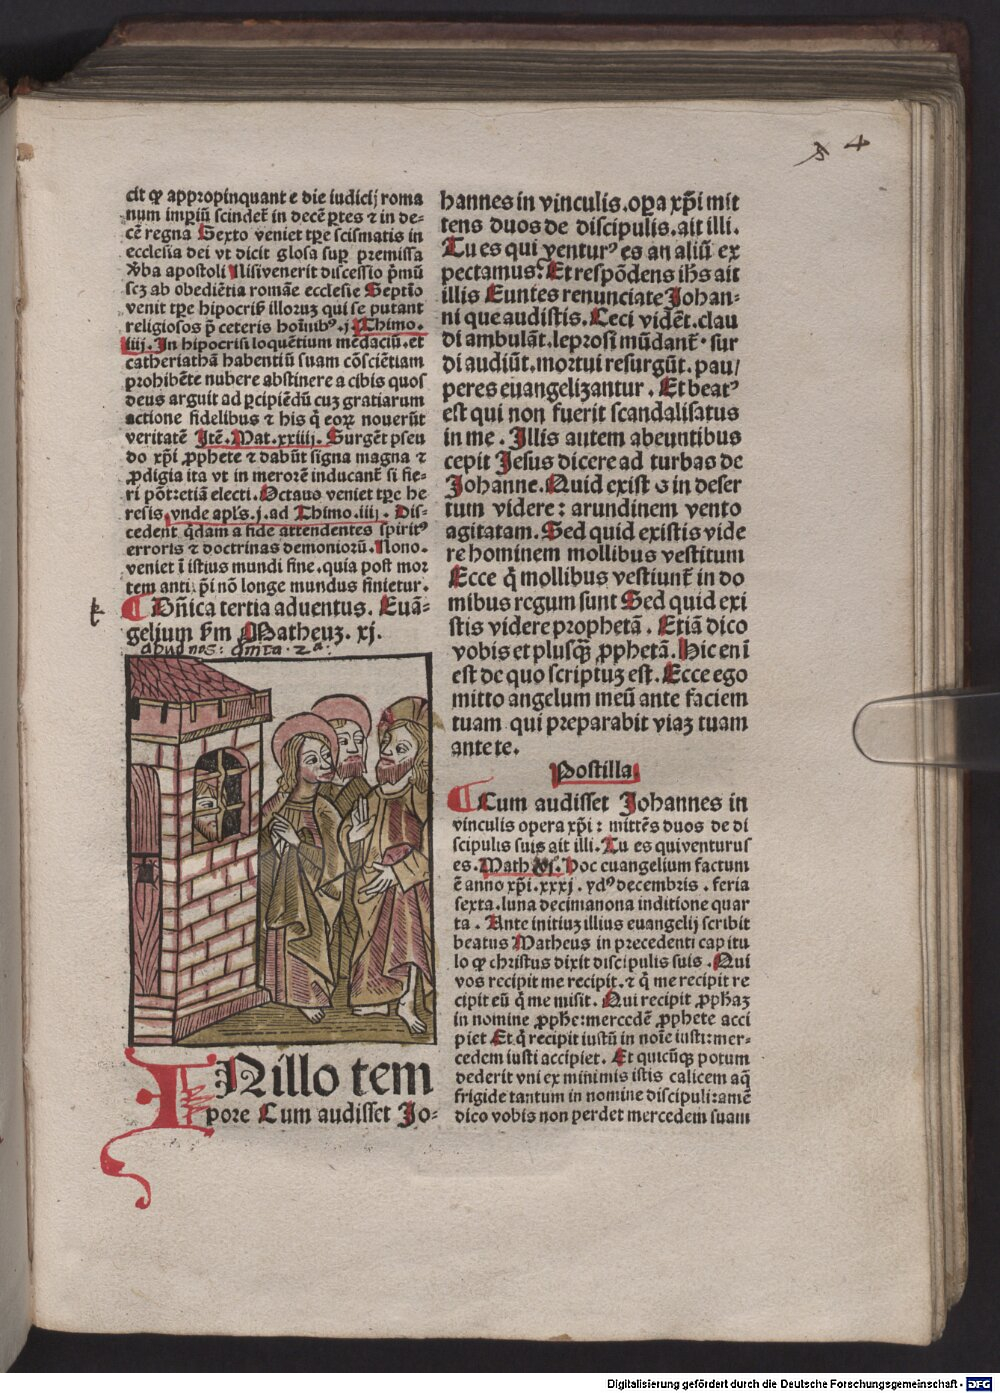 4
cit ꝙ appropinquante die iudicij roma
num imꝑiū scindet᷑ in decē ꝑtes ⁊ in de-
cē regna Sexto veniet tꝑe scismatis in
ecclesia dei vt dicit glosa suꝑ premissa
v̄ba apostoli Nisi venerit discessio p̄mū
scꝫ ab obediētia romāe ecclesie Septīo
venit tꝑe hipocriß illoruꝫ qui se putant
religiosos p̄ ceteris hoīnibꝰ .j. Thimo.
iiij. In hipocrisi loquētium mēdaciū. et
catheriathā habentiū suam cōsciētiam
prohibēte nubere abstinere a cibis quos
deus arguit ad ꝑcipiēdū cuꝫ gratiarum
actione fidelibus ⁊ his q̄ eoꝝ nouerūt
veritatē Itē. Mat. xxiiij. Surgēt pseu
do xp̄i ꝓphete ⁊ dabūt signa magna ⁊
ꝓdigia ita vt in merorē inducant᷑ si fie-
ri pōt: etiā electi. Octauo veniet tꝑe he
resis, vnde apl̄s .j. ad Thimo. iiij. Dis-
cedent q̄dam a fide attendentes spiritꝰ
erroris ⁊ doctrinas demoniorū. Nono.
veniet ī istius mundi fine. quia post mor
tem anti p̄i nō longe mundus finietur.
Dn̄ica tertia aduentus. Euā-
gelium ẜm Matheuꝫ. xj.
apud nos: dn̄ica. 2ª.
IN illo tem
pore Cum audisset Jo-
hannes in vinculis. oꝑa xp̄i mit
tens duos de discipulis. ait illi.
Tu es qui venturꝰ es an aliū ex
pectamus? Et respōdens ih̄s ait
illis Euntes renunciate Johan-
ni que audistis. Ceci vidēt. clau
di ambulāt. leprosi mūdant᷑. sur
di audiūt. mortui resurgūt. pau/
peres euangelizantur. Et beatꝰ
est qui non fuerit scandalisatus
in me. Illis autem abeuntibus
cepit Jesus dicere ad turbas de
Johanne. Quid exist ꝭ in deser
tum videre: arundinem vento
agitatam. Sed quid existis vide
re hominem mollibus vestitum
Ecce q̄ mollibus vestiunt᷑ in do
mibus regum sunt Sed quid exi
stis videre prophetā. Etiā dico
vobis et plusq̄ꝫ ꝓphetā. Hic en ī
est de quo scriptuꝫ est. Ecce ego
mitto angelum meū ante faciem
tuam qui preparabit viaꝫ tuam
ante te.
Postilla.
Cum audisset Johannes in
vinculis opera xp̄i: mittēs duos de di
scipulis suis ait illi. Tu es qui venturus
es. Math. xi. Hoc euangelium factum
ē anno xp̄i. xxxj. ydꝰ decembris. feria
sexta. luna decimanona inditione quar
ta. Ante initiuꝫ illius euangelij scribit
beatus Matheus in precedenti capitu
lo ꝙ christus dixit discipulis suis. Qui
vos recipit me recipit. ⁊ q̄ me recipit re
cipit eū q̄ me misit. Qui recipit ꝓphaꝫ
in nomine ꝓphe: mercedē ꝓphete acci
piet Et q̄ recipit iustū in noīe iusti: mer-
cedem iusti accipiet. Et quicūqꝫ potum
dederit vni ex minimis istis calicem aq̄
frigide tantum in nomine discipuli: amē
dico vobis non perdet mercedem suam
Digitalisierung gefördert durch die Deutsche Forschungsgemeinschaft - DFG